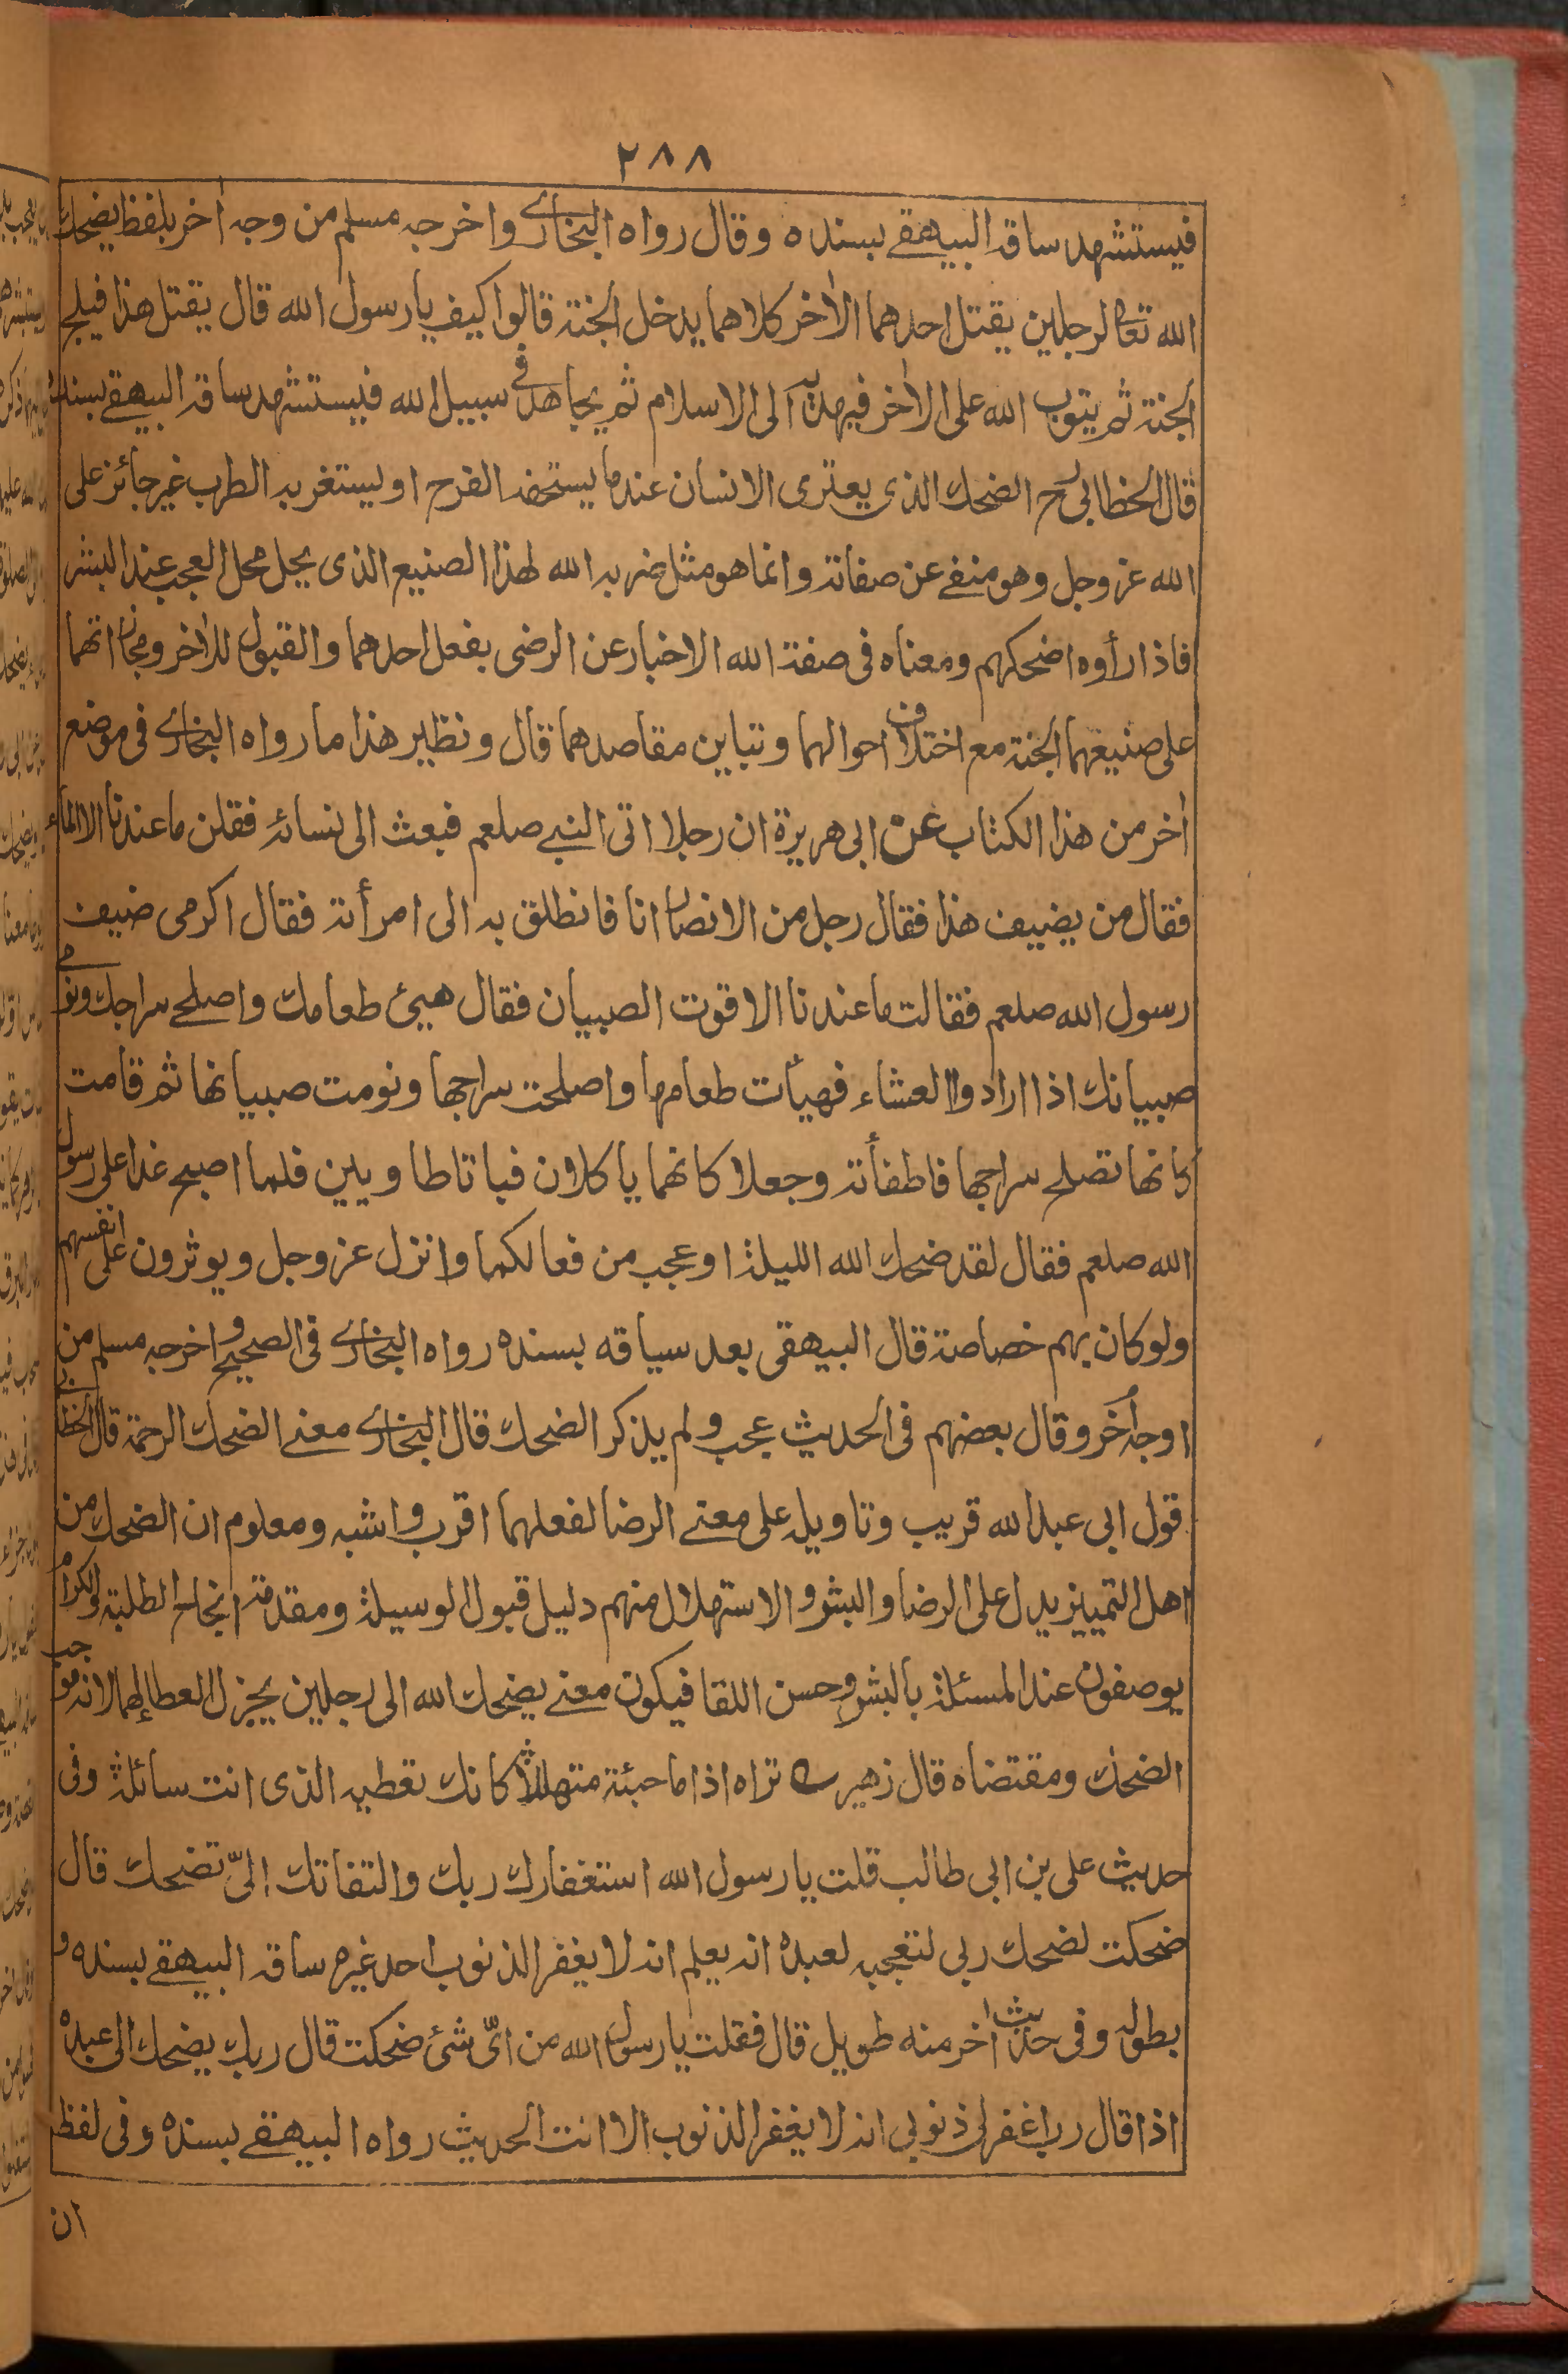 ٢٨٨
فيستشهد ساقه البيهقے بسنده وقال رواه البخارے واخرجه مسلم من وجه اٰخر بلفظ يضحك
الله تعالى لرجلين يقتل احدهما الاٰخر كلاهما يدخل الجنة قالوا كيف يا رسول الله قال يقتل هذا فيلج
الجنة ثم يتوب الله على الاٰخر فيهديه الى الاسلام ثم يجاهد فے سبيل الله فيستشهد ساقه البيهقے بسنده
قال الخطابى رح الضحك الذى يعترى الانسان عندما يستخفه الفرح او يستغربه الطرب غير جائز على
الله عز وجل وهو منفے عن صفاته وانما هو مثل ضربه الله لهذا الصنيع الذى يحل محل العجب عند البشر
فاذا رأوه اضحكهم ومعناه فى صفة الله الاخبار عن الرضى بفعل احدهما والقبول للاٰخر ومجازاتهما
على صنيعهما الجنة مع اختلاف احوالهما وتباين مقاصدهما قال ونظير هذا ما رواه البخارے فى موضع
اٰخر من هذا الكتاب عن ابى هريرة ان رجلا اتى النبے صلعم فبعث الى نسائه فقلن ما عندنا الا الماء
فقال من يضيف هذا فقال رجل من الانصار انا فانطلق به الى امرأته فقال اكرمى ضيف
رسول الله صلعم فقالت ما عندنا الا قوت الصبيان فقال هيئ طعامك واصلحے سراجك ونومے
صبيانك اذا ارادوا العشاء فهيأت طعامها واصلحت سراجها ونومت صبيانها ثم قامت
كانها تصلح سراجها فاطفأته وجعلا كانهما ياكلان فباتا طاويين فلما اصبح غدا على رسول
الله صلعم فقال لقد ضحك الله الليلة او عجب من فعالكما وانزل عز وجل ويوثرون على انفسهم
ولو كان بهم خصاصة قال البيهقى بعد سياقه بسنده رواه البخارے فى الصحيح واخرجه مسلم من
اوجه اُخَر وقال بعضهم فى الحديث عجب ولم يذكر الضحك قال البخارے معنے الضحك الرحمة قال الخطابے
قول ابى عبد الله قريب وتاويله على معنے الرضا لفعلهما اقرب واشبه ومعلوم ان الضحك من
اهل التمييز يدل على الرضا والبشر والاستهلال منهم دليل قبول الوسيلة ومقدمة انجاح الطلبة والكرام
يوصفون عند المسئلة بالبشر وحسن اللقا فيكون معنے يضحك الله الى رجلين يجزل العطا لهما لانه موجب
الضحك ومقتضاه قال زهير ے تراه اذا ما جئته متهللاً كانك تعطيه الذى انت سائله وفى
حديث على بن ابى طالب قلت يا رسول الله استغفارك ربك والتفاتك الىّ تضحك قال
ضحكت لضحك ربى لتعجبه لعبده انه يعلم انه لا يغفر الذنوب احد غيره ساقه البيهقے بسنده و
بطوله وفى حديث اٰخر منه طويل قال فقلت يا رسول الله من اىّ شئ ضحكت قال ربك يضحك الى عبده
اذا قال رب اغفر لى ذنوبى انه لا يغفر الذنوب الا انت الحديث رواه البيهقے بسنده وفى لفظ
ان